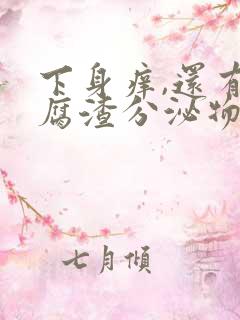 下身痒,還有
腐渣分泌物
七月傾